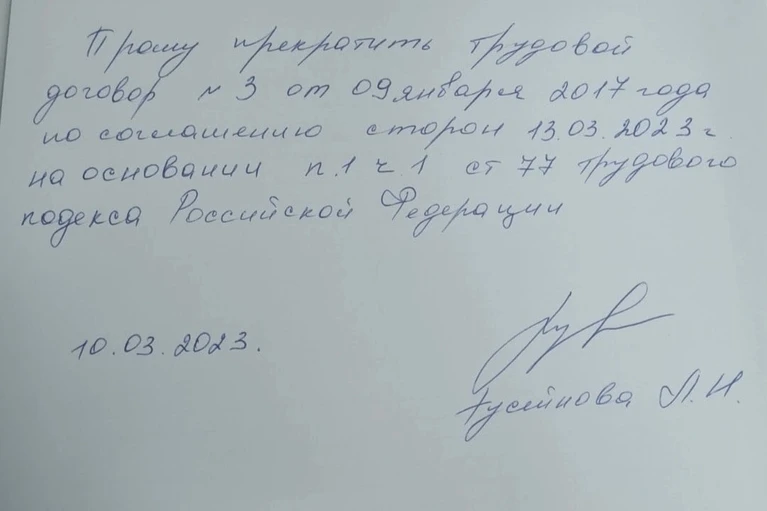 Прошу прекратить трудовой
договор № 3 от 09 января 2017 года
по соглашению сторон 13.03.2023 г
на основании п.1 ч.1 ст 77 трудового
кодекса Российской Федерации
10.03.2023.
Гусейнова Л.Н.